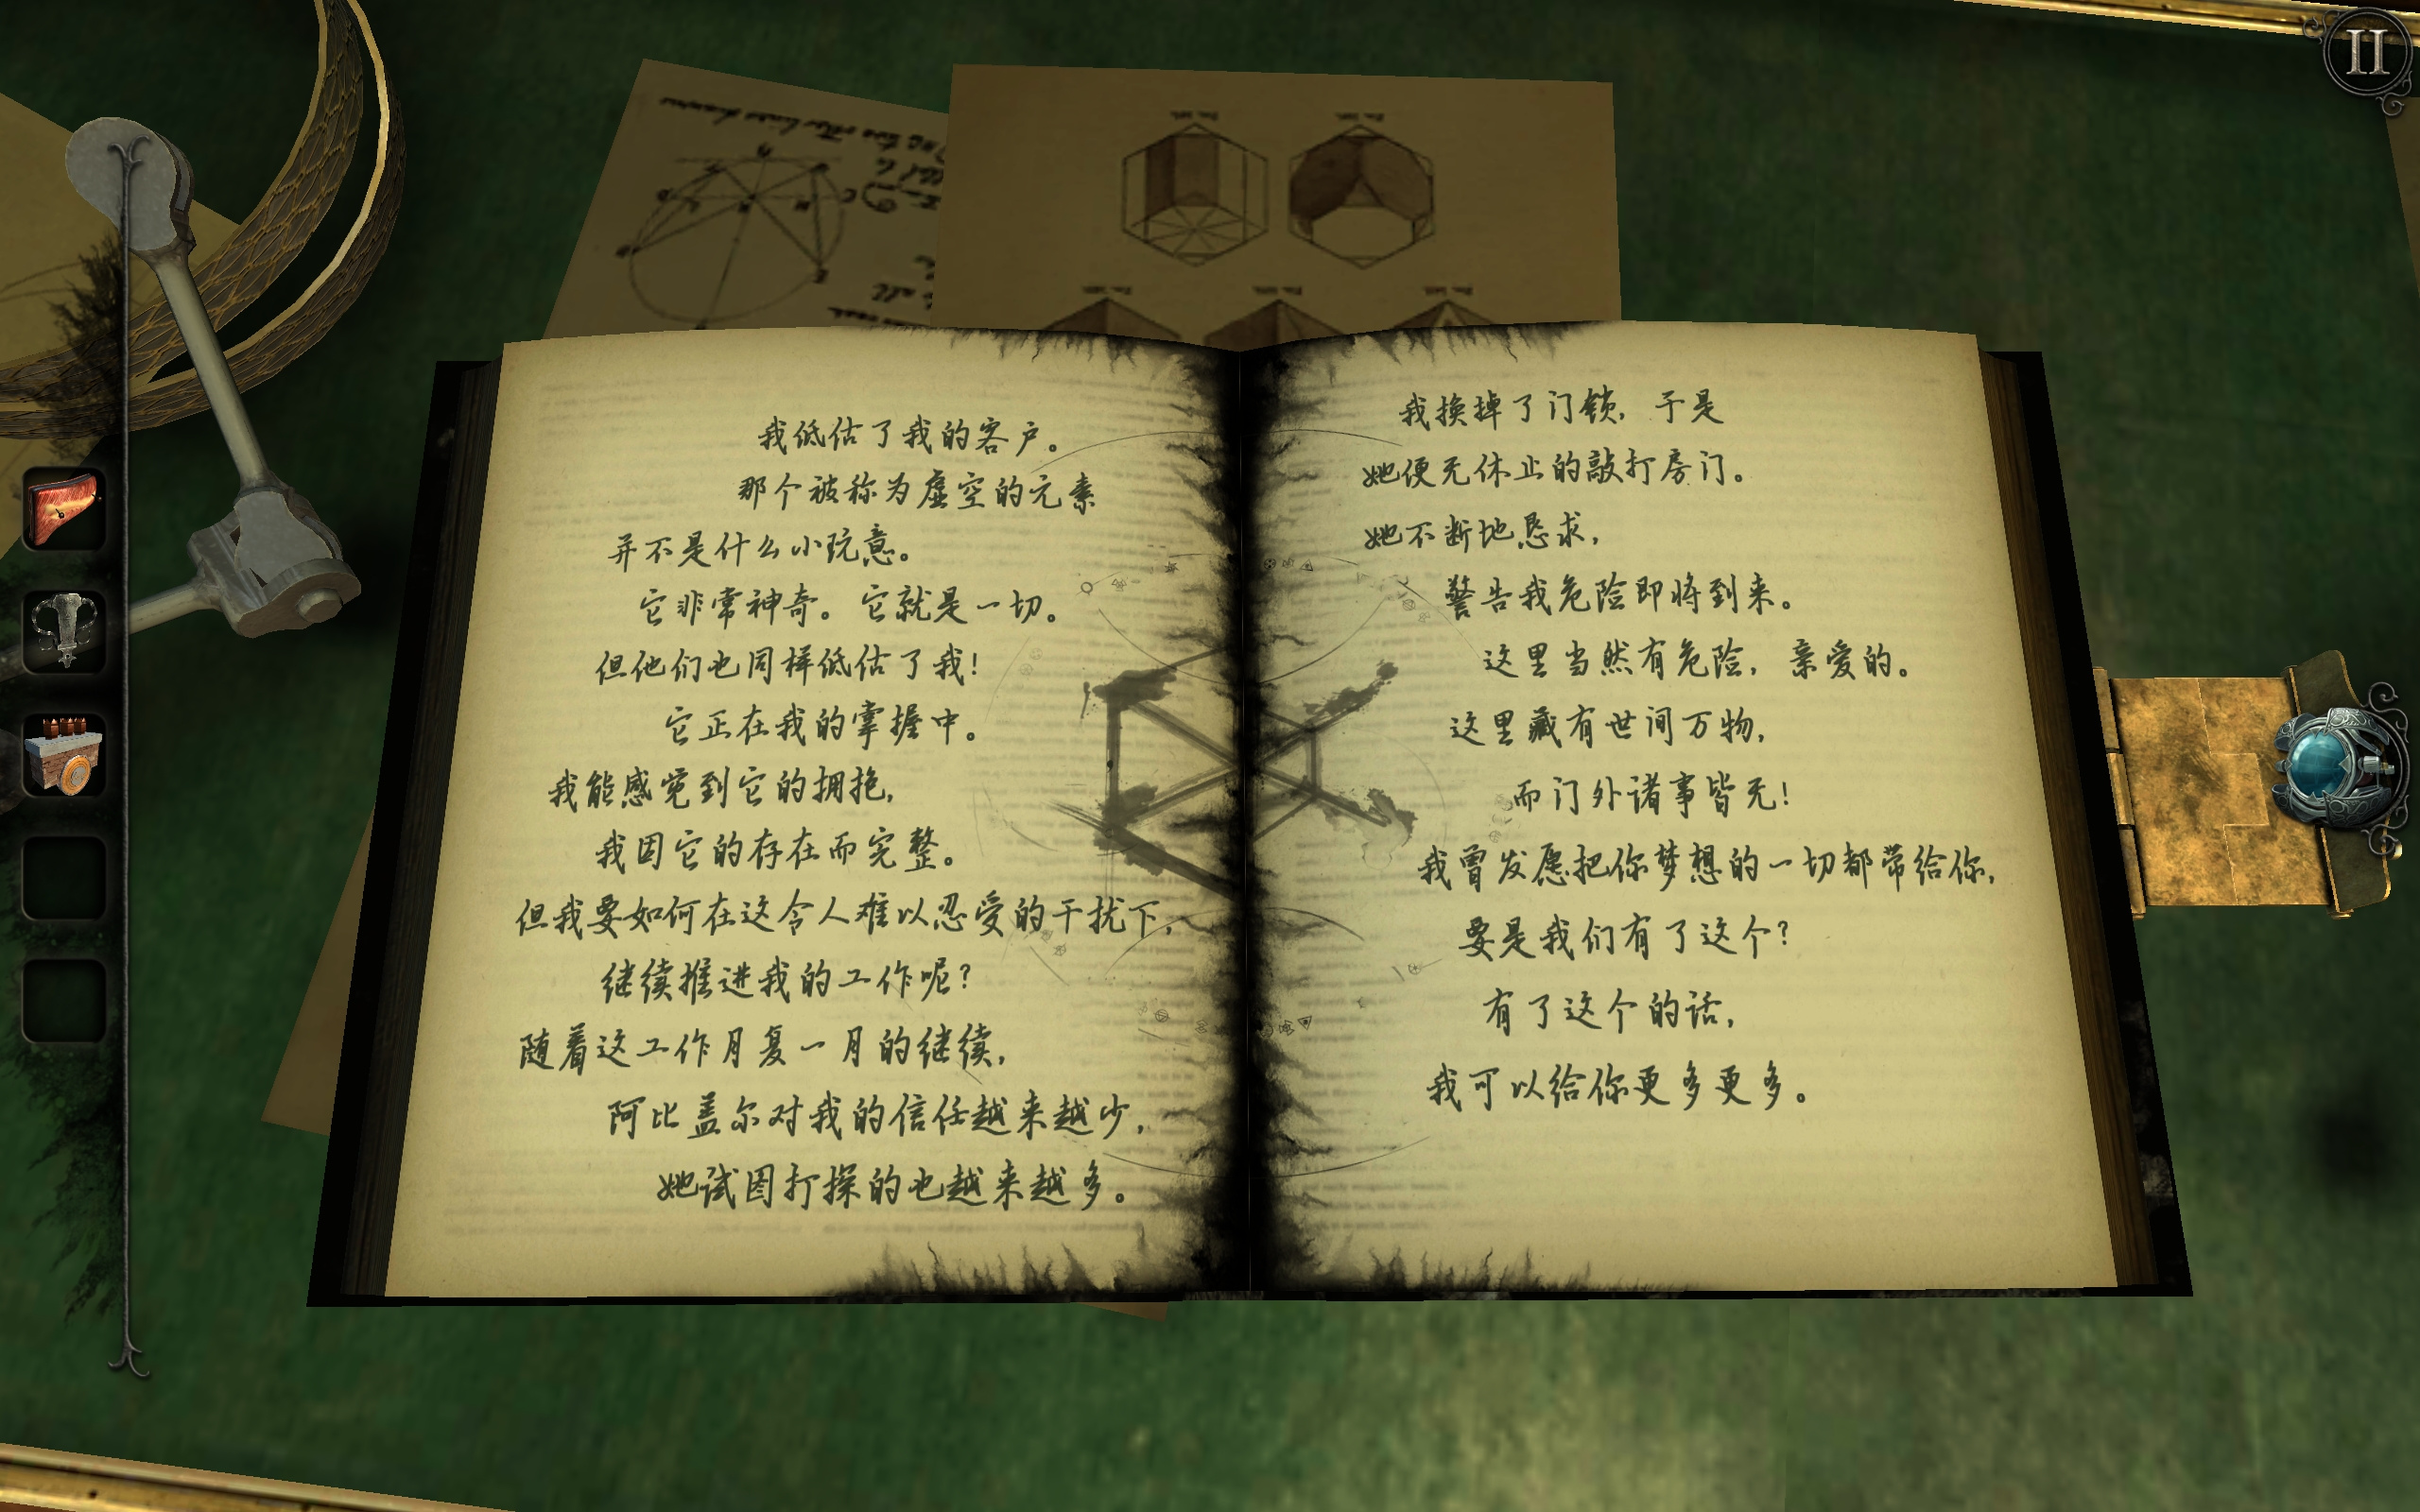 我低估了我的客户。
那个被称为虚空的元素
并不是什么小玩意。
它非常神奇。它就是一切。
但他们也同样低估了我!
它正在我的掌握中。
我能感觉到它的拥抱,
我因它的存在而完整。
但我要如何在这令人难以忍受的干扰下,
继续推进我的工作呢?
随着这工作月复一月的继续,
阿比盖尔对我的信任越来越少,
她试图打探的也越来越多。
我换掉了门锁, 于是
她便无休止的敲打房门。
她不断地恳求,
警告我危险即将到来。
这里当然有危险, 亲爱的。
这里藏有世间万物,
而门外诸事皆无!
我曾发愿把你梦想的一切都带给你,
要是我们有了这个?
有了这个的话,
我可以给你更多更多。
II